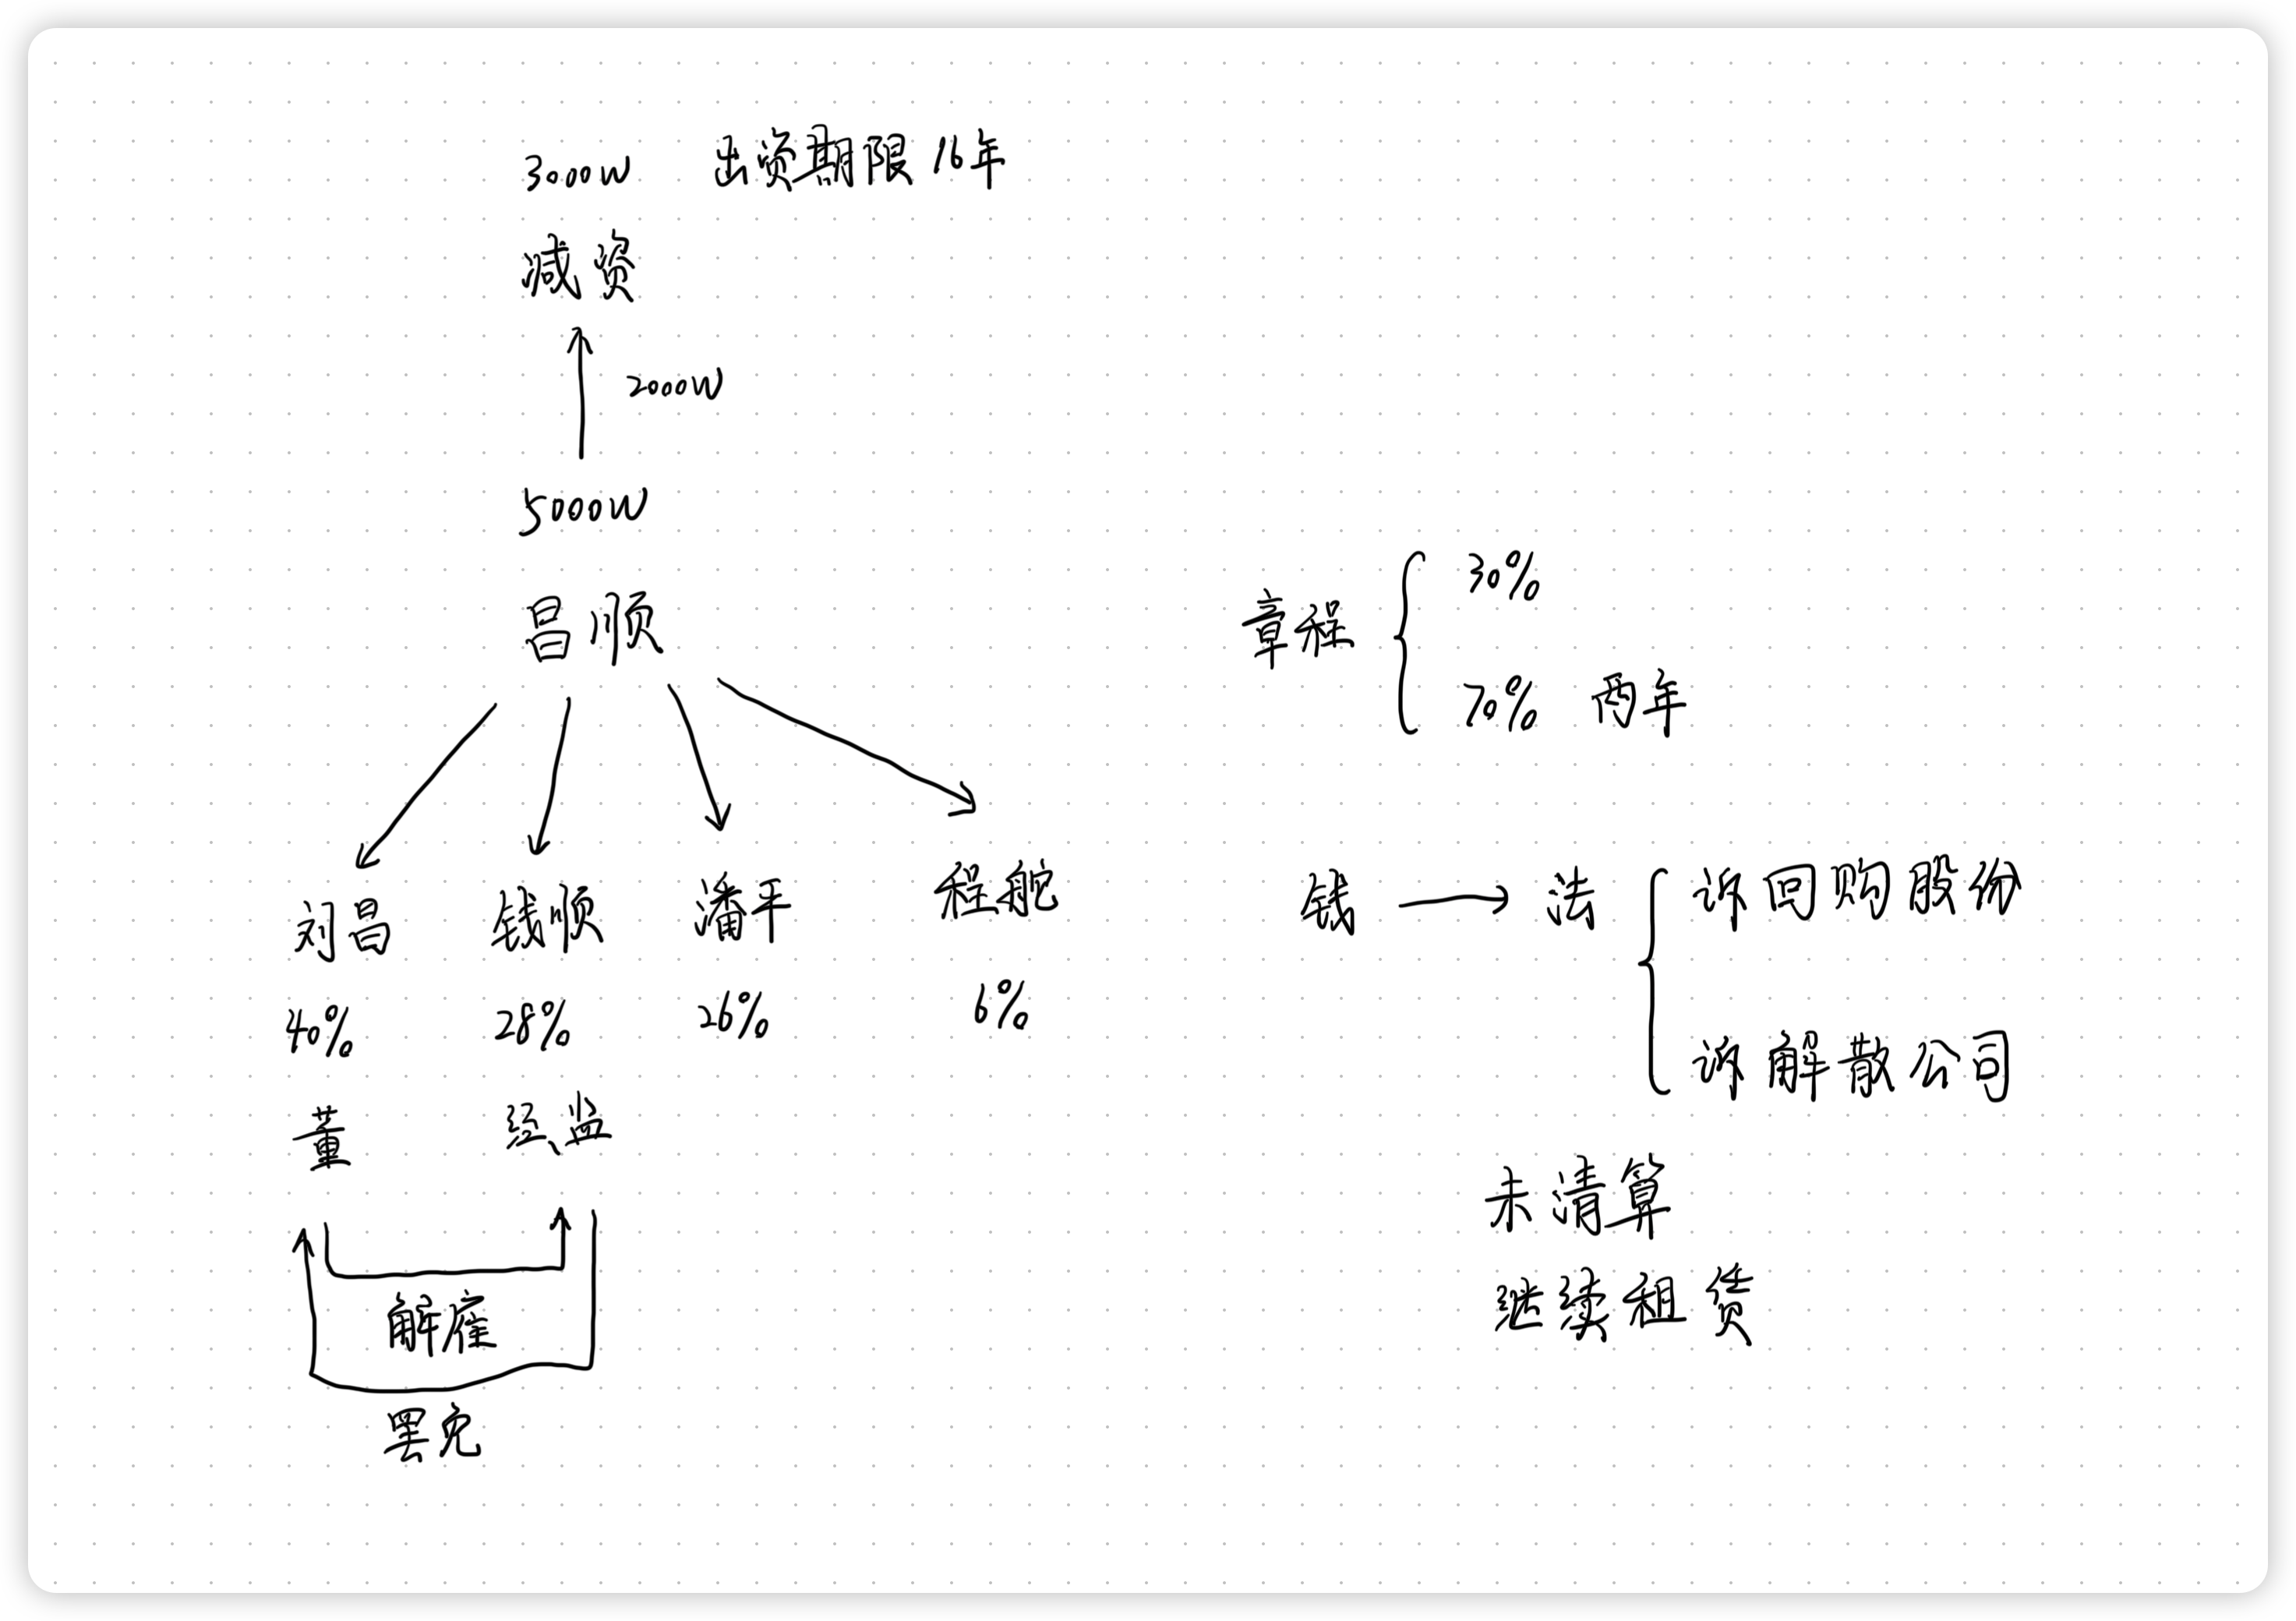 3000W 出资期限16年
减资
2000W
5000W
昌顺
刘昌 钱顺 潘平 程舵
40% 28% 26% 6%
董 经、监
解雇
罢免
章程 30%
70% 两年
钱 法 诉回购股份
诉解散公司
未清算
继续租赁